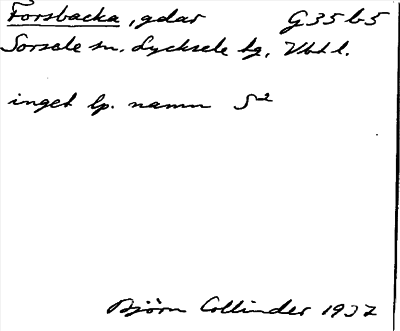 Forsbacka, gdar G35b5
Sorsele sn. Lycksele tg. Vbtl.
inget lp. namn S²
Björn Collinder 1937